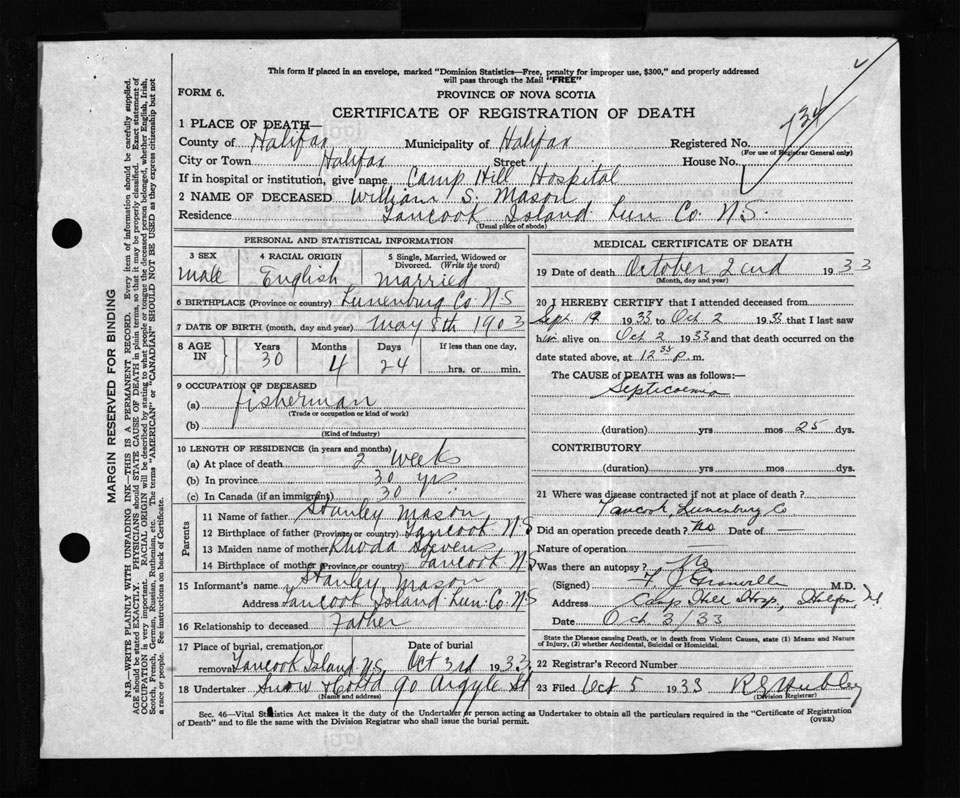 This form if placed in an envelope, marked "Dominion Statistics—Free, penalty for improper use, $300," and properly addressed
will pass through the Mail "FREE"
FORM 6.
PROVINCE OF NOVA SCOTIA
CERTIFICATE OF REGISTRATION OF DEATH
1 PLACE OF DEATH—
County of Halifax Municipality of Halifax Registered No. 734
(For use of Registrar General only)
City or Town Halifax Street House No.
If in hospital or institution, give name Camp Hill Hospital
2 NAME OF DECEASED William S. Mason
Residence Tancook Island Lun Co. N.S.
(Usual place of abode)
PERSONAL AND STATISTICAL INFORMATION
3 SEX 4 RACIAL ORIGIN 5 Single, Married, Widowed or
Divorced. (Write the word)
male English married
6 BIRTHPLACE (Province or country) Lunenburg Co N.S
7 DATE OF BIRTH (month, day and year) May 8th 1903
8 AGE IN Years Months Days If less than one day,
30 4 24 hrs. or min.
9 OCCUPATION OF DECEASED
(a) fisherman
(Trade or occupation or kind of work)
(b)
(Kind of industry)
10 LENGTH OF RESIDENCE (in years and months)
(a) At place of death 2 weeks
(b) In province 30 yrs
(c) In Canada (if an immigrant) 30 "
Parents
11 Name of father Stanley Mason
12 Birthplace of father (Province or country) Tancook N.S
13 Maiden name of mother Rhoda Stevens
14 Birthplace of mother (Province or country) Tancook N.S
15 Informant's name Stanley Mason
Address Tancook Island Lun. Co. N.S
16 Relationship to deceased Father
17 Place of burial, cremation or Date of burial
removal Tancook Island N.S. Oct 3rd 1933
18 Undertaker Snow & Co Ltd 90 Argyle St
(Name and address)
MEDICAL CERTIFICATE OF DEATH
19 Date of death October 2nd 1933
(Month, day and year)
20 I HEREBY CERTIFY that I attended deceased from
Sept 19 1933 to Oct 2 1933 that I last saw
him alive on Oct 2 1933 and that death occurred on the
date stated above, at 12 35 p.m.
The CAUSE of DEATH was as follows:—
Septicaemia
(duration) yrs mos 25 dys.
CONTRIBUTORY
(duration) yrs mos dys.
21 Where was disease contracted if not at place of death?
Tancook, Lunenburg Co
Did an operation precede death? No Date of —
Nature of operation —
Was there an autopsy? No
(Signed) M.D.
Address Camp Hill Hosp, Halifax
Date Oct 3/33
State the Disease causing Death, or in death from Violent Causes, state (1) Means and Nature
of Injury, (2) whether Accidental, Suicidal or Homicidal.
22 Registrar's Record Number
23 Filed Oct 5 1933
(Division Registrar)
Sec. 46—Vital Statistics Act makes it the duty of the Undertaker or person acting as Undertaker to obtain all the particulars required in the "Certificate of Registration
of Death" and to file the same with the Division Registrar who shall issue the burial permit.
(OVER)
MARGIN RESERVED FOR BINDING
N.B.—WRITE PLAINLY WITH UNFADING INK—THIS IS A PERMANENT RECORD. Every item of information should be carefully supplied.
AGE should be stated EXACTLY. PHYSICIANS should STATE CAUSE OF DEATH in plain terms, so that it may be properly classified. Exact statement of
OCCUPATION is very important. RACIAL ORIGIN will be described by stating to what people or tongue the deceased person belonged, whether English, Irish,
Scotch, French, German, Russian, Ruthenian, etc. The terms "AMERICAN" or "CANADIAN" SHOULD NOT BE USED as they express citizenship but not
a race or people. See instructions on back of Certificate.